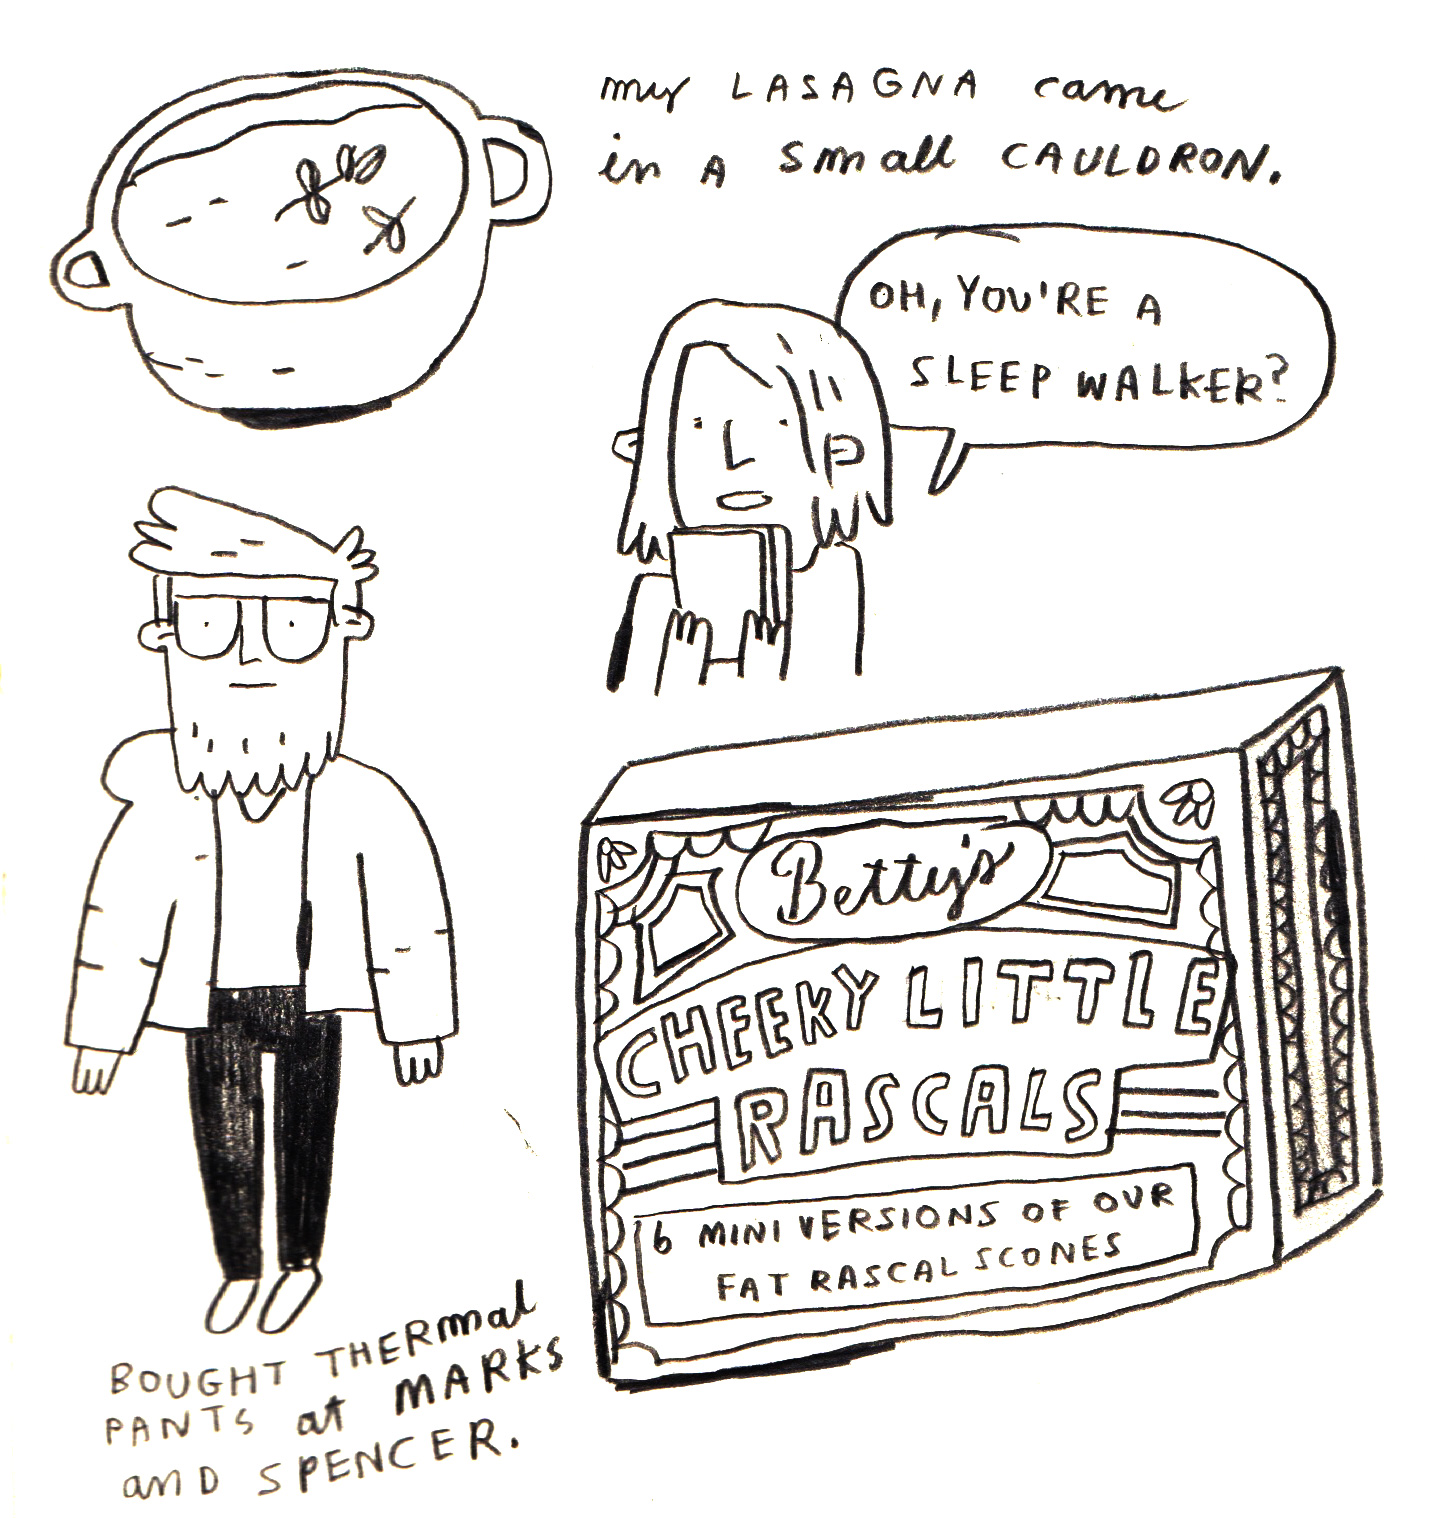 my LASAGNA came
in A small CAULDRON.
OH, YOU'RE A
SLEEP WALKER?
Betty's
CHEEKY LITTLE
RASCALS
6 MINI VERSIONS OF OUR
FAT RASCAL SCONES
BOUGHT THERmal
PANTS at MARKS
anD SPENCER.